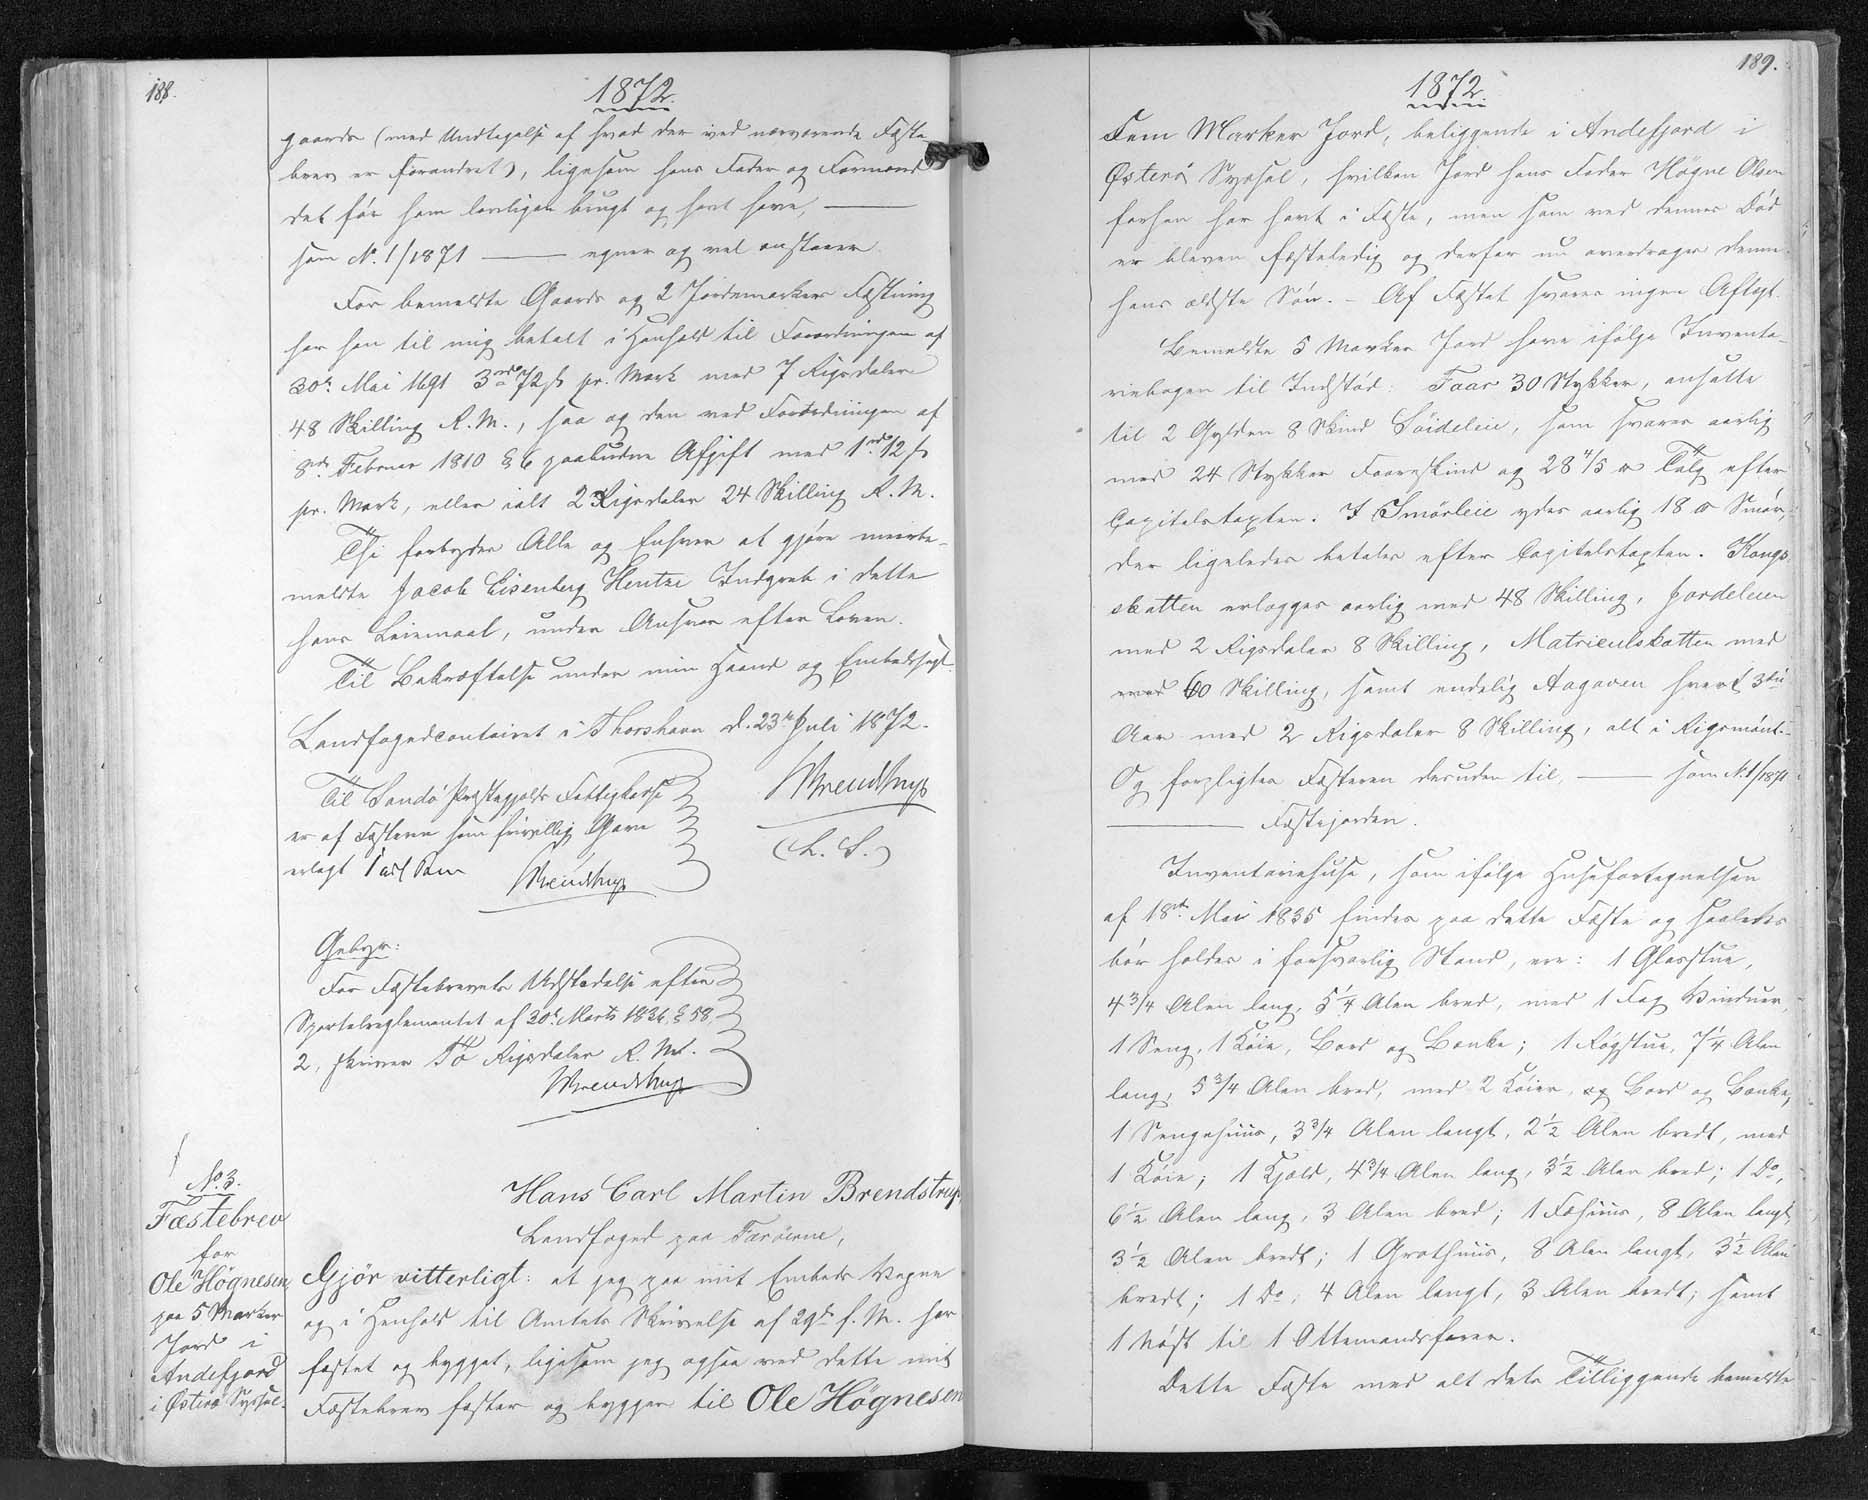 188.
1872.
gaards (med Undtagelse af hvad der ved nærværende Fæste-
brev er forandret), ligesom hans Fader og Formænd
det før ham lovligen brugt og havt have, ——
som N. 1/1871 —— egner og vel anstaaer.
For bemeldte Gaards og 2 Jordemarkers Fæstning
har han til mig betalt i Henhold til Forordningen af
30te Mai 1691 3 rd 72 s pr. Mark med 7 Rigsdaler
48 Skilling R. M., saa og den ved Forordningen af
8de Februar 1810 § 6 paabudne Afgift med 1 rd 12 s
pr. Mark, eller ialt 2 Rigsdaler 24 Skilling R. M.
Thi forbydes Alle og Enhver at gjøre meerbe-
meldte Jacob Eisenberg Hentze Indgreb i dette
hans Leiemaal, under Ansvar efter Loven.
Til Bekræftelse under min Haand og Embedssegl.
Landfogedcontoiret i Thorshavn d. 23de Juli 1872.
Brendstrup
(L. S.)
Til Sandø Præstegjelds Fattigkasse
er af Fæsteren som frivillig Gave
erlagt
Brendstrup
Gebyr:
For Fæstebrevets Udstedelse efter
Sportelreglementet af 30te Marts 1836 § 58,
2, skriver To Rigsdaler R. Mt.
Brendstrup
No. 3.
Fæstebrev
for
Ole Högnesen
paa 5 Marker
Jord i
Andefjord
i Østerø Syssel.
Hans Carl Martin Brendstrup
Landfoged paa Færøerne,
Gjör vitterligt: at jeg paa mit Embeds Vegne
og i Henhold til Amtets Skrivelse af 29de f. M. har
fæstet og bygget, ligesom jeg ogsaa ved dette mit
Fæstebrev fæster og bygger til Ole Högnesen
189.
1872.
Fem Marker Jord, beliggende i Andefjord i
Østerø Syssel, hvilken Jord hans Fader Högne Olsen
forhen har havt i Fæste, men som ved dennes Död
er bleven fæsteledig og derfor nu overdrages denne
hans ældste Sön. – Af Fæstet svares ingen Aftægt.
Bemeldte 5 Marker Jord have ifølge Invента-
riebogen til Indstød: Faar 30 Stykker, ansatte
til 2 Gylden 8 Skind Söideleie, som svares aarlig
med 24 Stykker Faareskind og 28 4/5 ℔ Tælg efter
Capitelstaxten. I Smörleie ydes aarlig 18 ℔ Smör,
der ligeledes betales efter Capitelstaxten. Konge-
skatten erlægges aarlig med 48 Skilling, Jordeleien
med 2 Rigsdaler 8 Skilling, Matriculskatten med
med 60 Skilling, samt endelig Aagaven hvert 3die
Aar med 2 Rigsdaler 8 Skilling, alt i Rigsmönt.
Og forpligtes Fæsteren desuden til, —— som N. 1/1871
—— Fæstejorden.
Inventariehuse, som ifølge Husefortegnelsen
af 18de Mai 1835 findes paa dette Fæste og saaledes
bör holdes i forsvarlig Stand, ere: 1 Glasstue,
4 3/4 Alen lang, 5 1/4 Alen bred, med 1 Fag Vinduer,
1 Seng, 1 Köie, Bord og Bænke; 1 Røgstue, 7 1/4 Alen
lang, 5 3/4 Alen bred, med 2 Köier, og Bord og Bænke,
1 Sengehuus, 3 3/4 Alen langt, 2 1/2 Alen bredt, med
1 Köie; 1 Hjald, 4 3/4 Alen lang, 3 1/2 Alen bred; 1 Do,
6 1/2 Alen lang, 3 Alen bred; 1 Fæhuus, 8 Alen langt,
3 1/2 Alen bredt; 1 Grothuus, 8 Alen langt, 3 1/2 Alen
bredt; 1 Do, 4 Alen langt, 3 Alen bredt; samt
1 Nöst til 1 Ottemandsfarer.
Dette Fæste med alt dets Tilliggende bemeldte